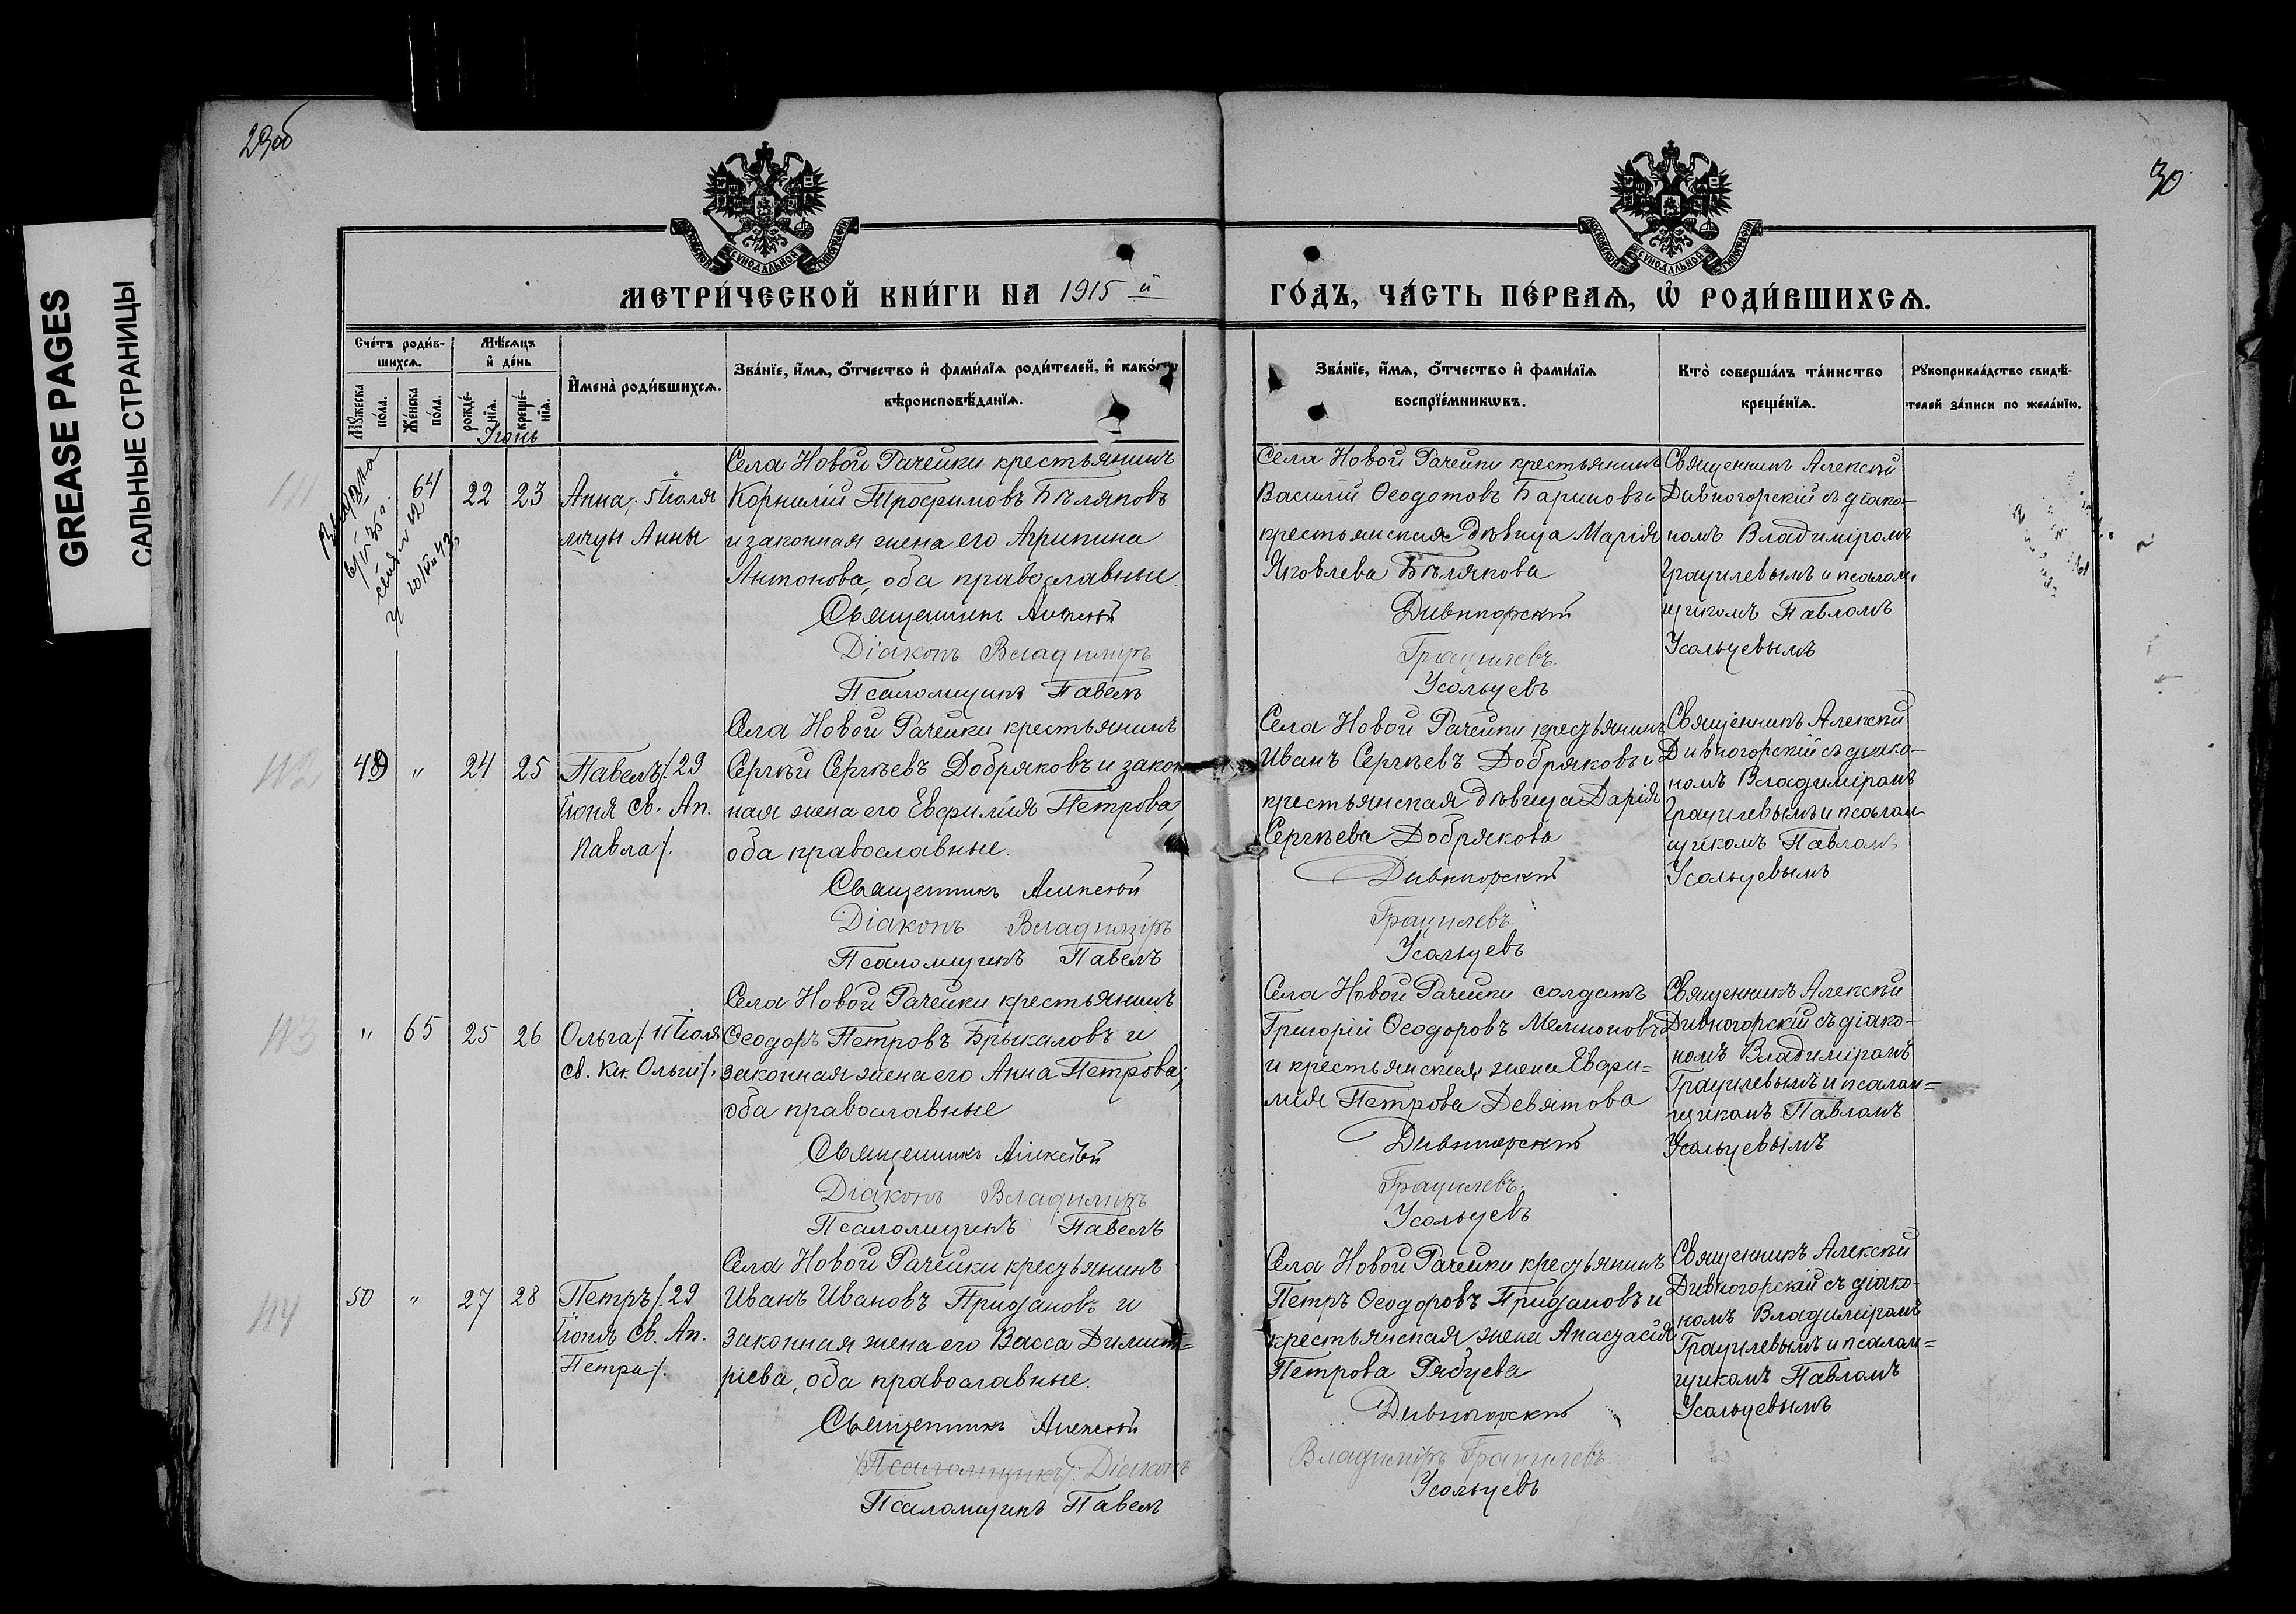 29об
30
GREASE PAGES
САЛЬНЫЕ СТРАНИЦЫ
МОСКОВСКОЙ СѴНОДАЛЬНОЙ ТИПОГРАФІИ
МОСКОВСКОЙ СѴНОДАЛЬНОЙ ТИПОГРАФІИ
МЕТРИ́ЧЕСКОЙ КНИ́ГИ НА 1915 й
ГО́ДЪ, ЧА́СТЬ ПЕ́РВАЯ, Ѡ҆ РОДИ́ВШИХСЯ.
Сче́тъ роди́в-
шихся.
Мꙋ́жеска
по́ла.
Же́нска
по́ла.
Мѣ́сяцъ
и҆ де́нь
рожде́-
нїя.
креще́-
нїя.
И҆мена̀ роди́вшихся.
Зва́нїе, и҆́мя, ѻ҆́тчество и҆ фами́лїя роди́телей, и҆ како́гѡ
вѣроисповѣ́данїя.
Зва́нїе, и҆́мя, ѻ҆́тчество и҆ фами́лїя
воспрїе́мникѡвъ.
Кто̀ соверша́лъ та́инство
креще́нїя.
Рꙋкоприкла́дство свидѣ́-
телей за́писи по жела́нїю.
Іюнь
111
64
22 23
Анна, 5 Іюля
мчцы Анны
Села Новой Рачейки крестьянинъ
Корнилій Трофимовъ Бѣляковъ
и законная жена его Агрипина
Антонова, оба православные.
Священникъ Алексѣй
Діаконъ Владиміръ
Псаломщикъ Павелъ
Села Новой Рачейки крестьянинъ
Василій Ѳеодотовъ Бариновъ и
крестьянская дѣвица Марія
Яковлева Бѣлякова
Дивногорскій
Грацилевъ.
Усольцевъ
Священникъ Алексѣй
Дивногорскій съ діако-
номъ Владиміромъ
Грацилевымъ и псалом-
щикомъ Павломъ
Усольцевымъ
112
49 " 24 25
Павелъ /29
Іюня Св. Ап.
Павла/.
Села Новой Рачейки крестьянинъ
Сергѣй Сергѣевъ Добряковъ и закон
ная жена его Евфимія Петрова,
оба православные.
Священникъ Алексѣй
Діаконъ Владиміръ
Псаломщикъ Павелъ
Села Новой Рачейки крестьянинъ
Иванъ Сергѣевъ Добряковъ и
крестьянская дѣвица Дарія
Сергѣева Добрякова
Дивногорскій
Грацилевъ.
Усольцевъ
Священникъ Алексѣй
Дивногорскій съ діако-
номъ Владиміромъ
Грацилевымъ и псалом-
щикомъ Павломъ
Усольцевымъ
113
" 65 25 26
Ольга /11 Іюля
св. Кн. Ольги/.
Села Новой Рачейки крестьянинъ
Ѳеодоръ Петровъ Брыкаловъ и
законная жена его Анна Петрова,
оба православные
Священникъ Алексѣй
Діаконъ Владиміръ
Псаломщикъ Павелъ
Села Новой Рачейки солдатъ
Григорій Ѳеодоровъ
и крестьянская жена Евфи=
мія Петрова Девятова
Дивногорскій
Грацилевъ.
Усольцевъ
Священникъ Алексѣй
Дивногорскій съ діако-
номъ Владиміромъ
Грацилевымъ и псалом=
щикомъ Павломъ
Усольцевымъ
114
50 " 27 28
Петръ /29
Іюня Св. Ап.
Петра/.
Села Новой Рачейки крестьянинъ
Иванъ Ивановъ Придановъ и
законная жена его Васса Димит=
ріева, оба православные.
Священникъ Алексѣй
/Псаломщикъ/. Діаконъ
Псаломщикъ Павелъ
Села Новой Рачейки крестьянинъ
Петръ Ѳеодоровъ Придановъ и
крестьянская жена Анастасія
Петрова Рябцева
Дивногорскій
Владиміръ Грацилевъ.
Усольцевъ
Священникъ Алексѣй
Дивногорскій съ діако-
номъ Владиміромъ
Грацилевымъ и псалом=
щикомъ Павломъ
Усольцевымъ